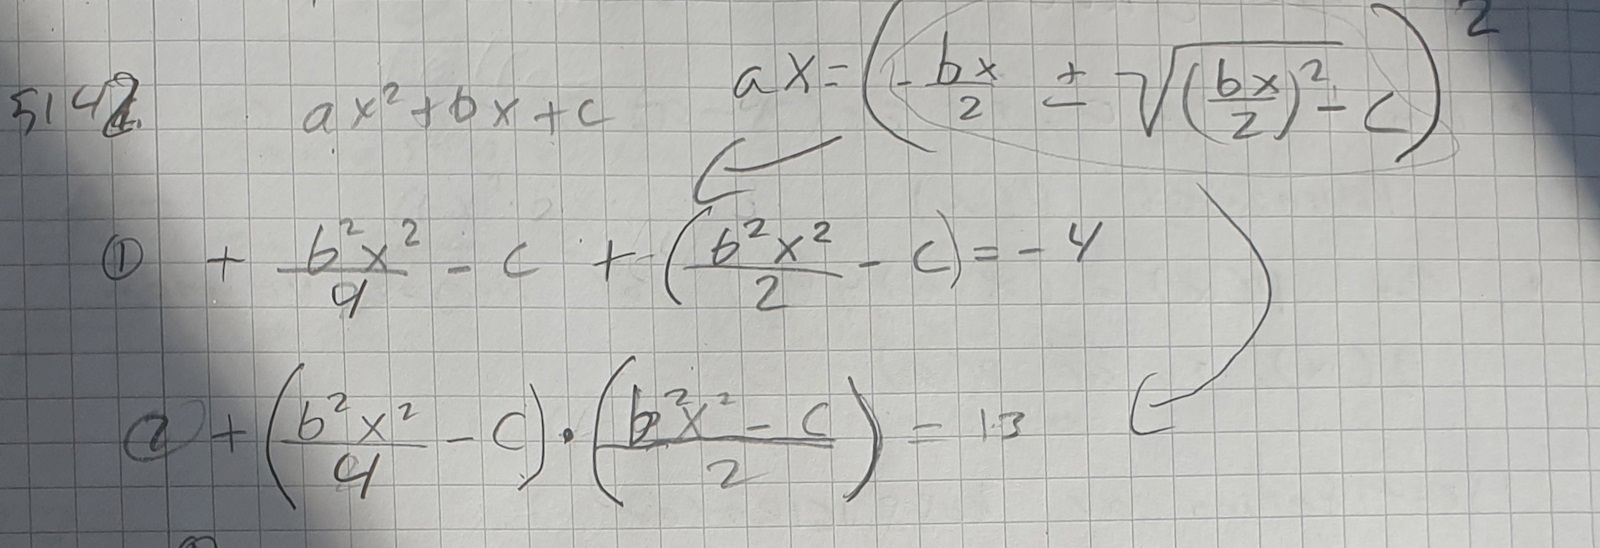 5142. ax² + bx + c   ax = (-bx/2 ± √((bx/2)² - c))²
① + b²x²/4 - c + (b²x²/2 - c) = -4
② + (b²x²/4 - c) · ((b²x² - c)/2) = 13